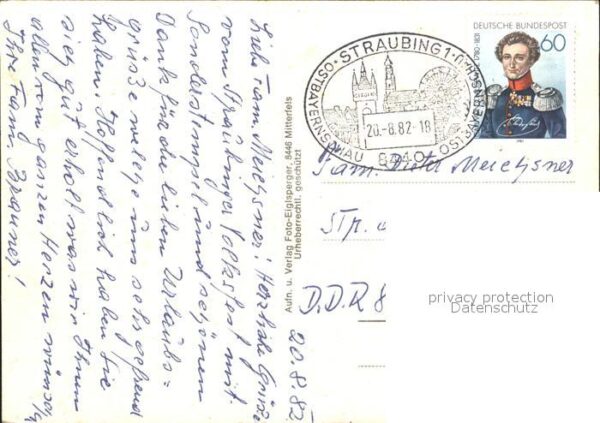 Liebe Fam. Meichsner! Herzliche Grüße
vom Straubinger Volksfest mit
Sonderstempel und schönen
Dank für die lieben Urlaubs=
grüße welche uns sehr gefreut
haben. Hoffendlich haben Sie
sich gut erholt was wir Ihnen
allen vom ganzen Herzen wünschen
Ihre Fam. Brauner!
20.8.82
Aufn. u. Verlag Foto-Eiglsperger, 8446 Mitterfels
Urheberrechtl. geschützt
STRAUBING 1
OSTBAYERNSCHAU
20.-8.82-18
8440
DEUTSCHE BUNDESPOST
60
1780-1831
1981
Fam. Meichsner
Str.
D.D.R 8
privacy protection
Datenschutz